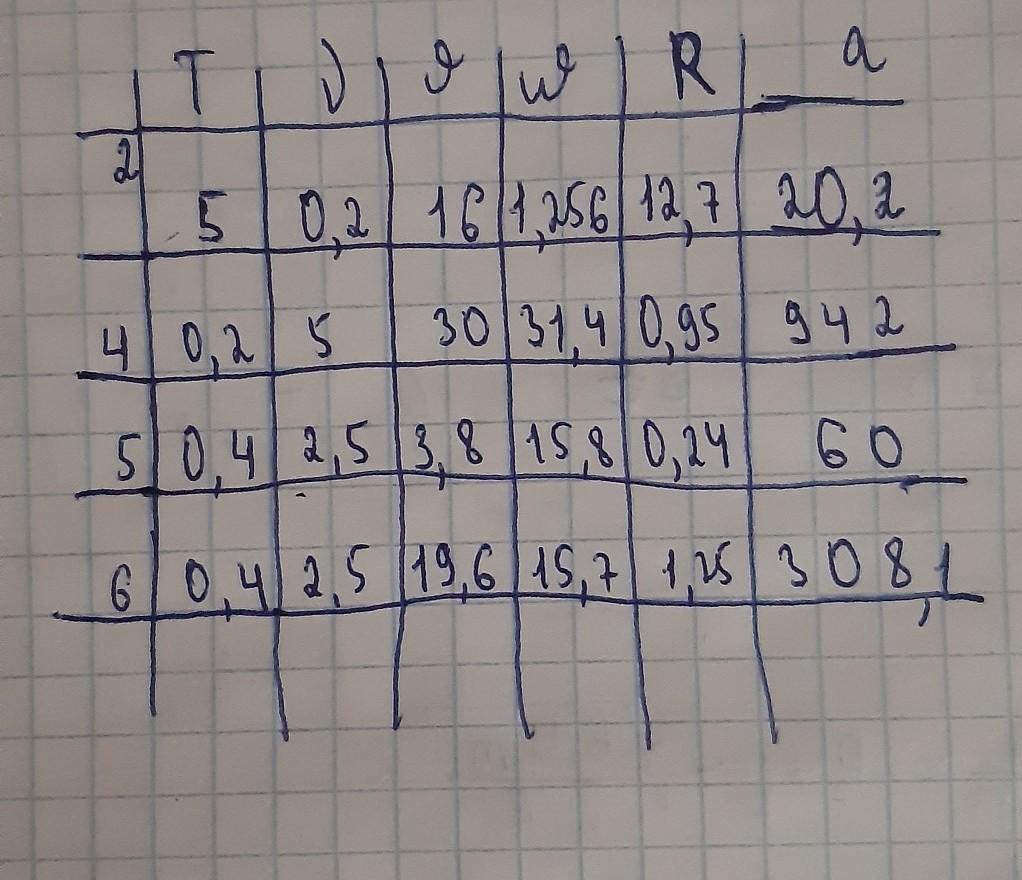 T ν υ ω R a
2 5 0,2 16 1,256 12,7 20,2
4 0,2 5 30 31,4 0,95 942
5 0,4 2,5 3,8 15,8 0,24 60
6 0,4 2,5 19,6 15,7 1,25 308,1